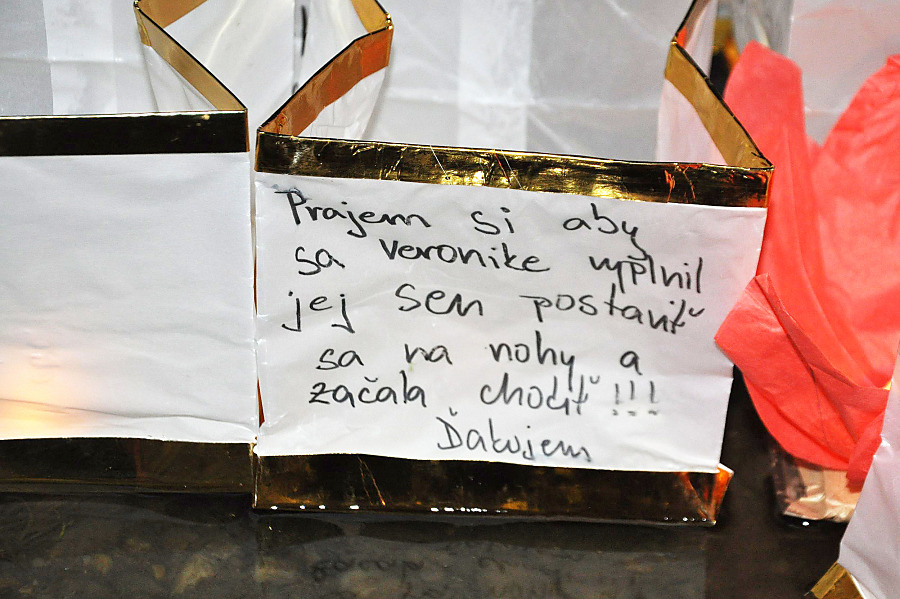 Prajem si aby
sa Veronike vyplnil
jej sen postaviť
sa na nohy a
začala chodiť !!!
Ďakujem